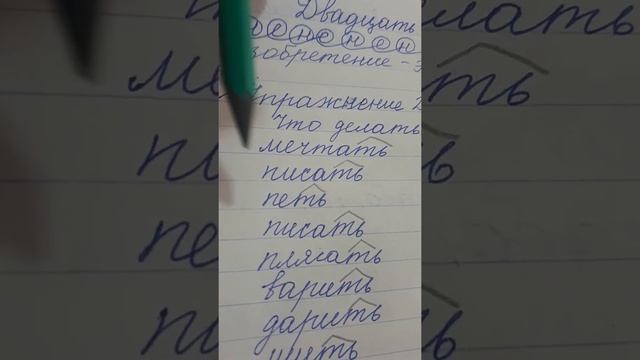 Двадцать
зобретение -
Упражнение 2
Что делать
мечтать
писать
петь
писать
плясать
варить
дарить